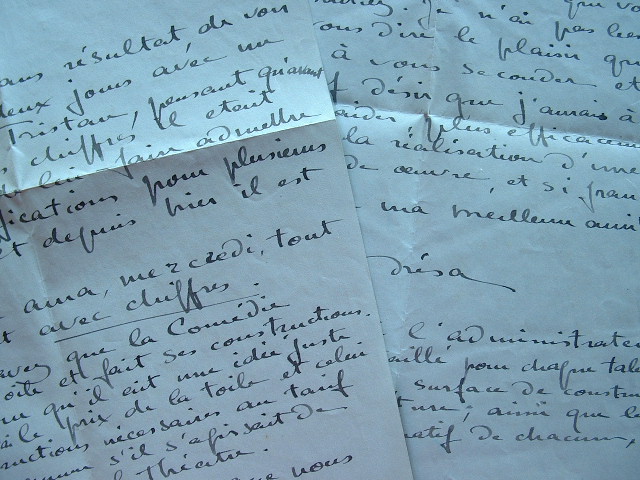 résultat de von
deux jours avec un
Tristan, pensant qu'avant
chiffres il etant
faire admettre
fications pour plusieurs
et depuis hier il est
mercredi, tout
avec chiffres.
que la Comédie
toile et fait ses constructions.
qu'il ait une idée juste
le prix de la toile et celui
nécessaires au tarif
s'il s'agissait de
Théatre.
que nous
que vo
je n'ai pas
ous dire le plaisir qu
à vous seconder et
désir que j'aurais à
aider plus efficacem
la réalisation d'une
de œuvre, et si fran
ma meilleure
drésa
l'administrate
pour chaque
surface de constru
ture; ainsi que le
ratif de chacun,